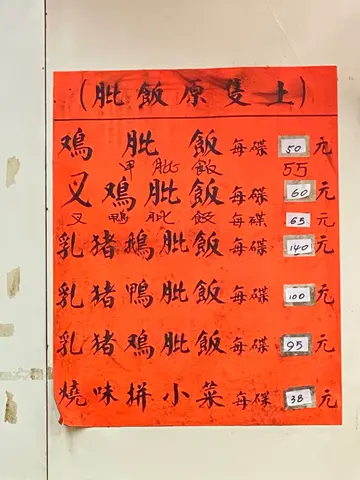 (肶飯原隻上)
鸡肶飯每碟50元
甲肶飯 55
叉鸡肶飯每碟60元
叉鴨肶飯每碟65元
乳猪鵝肶飯每碟140元
乳猪鴨肶飯每碟100元
乳猪鸡肶飯每碟95元
燒味拼小菜每碟38元